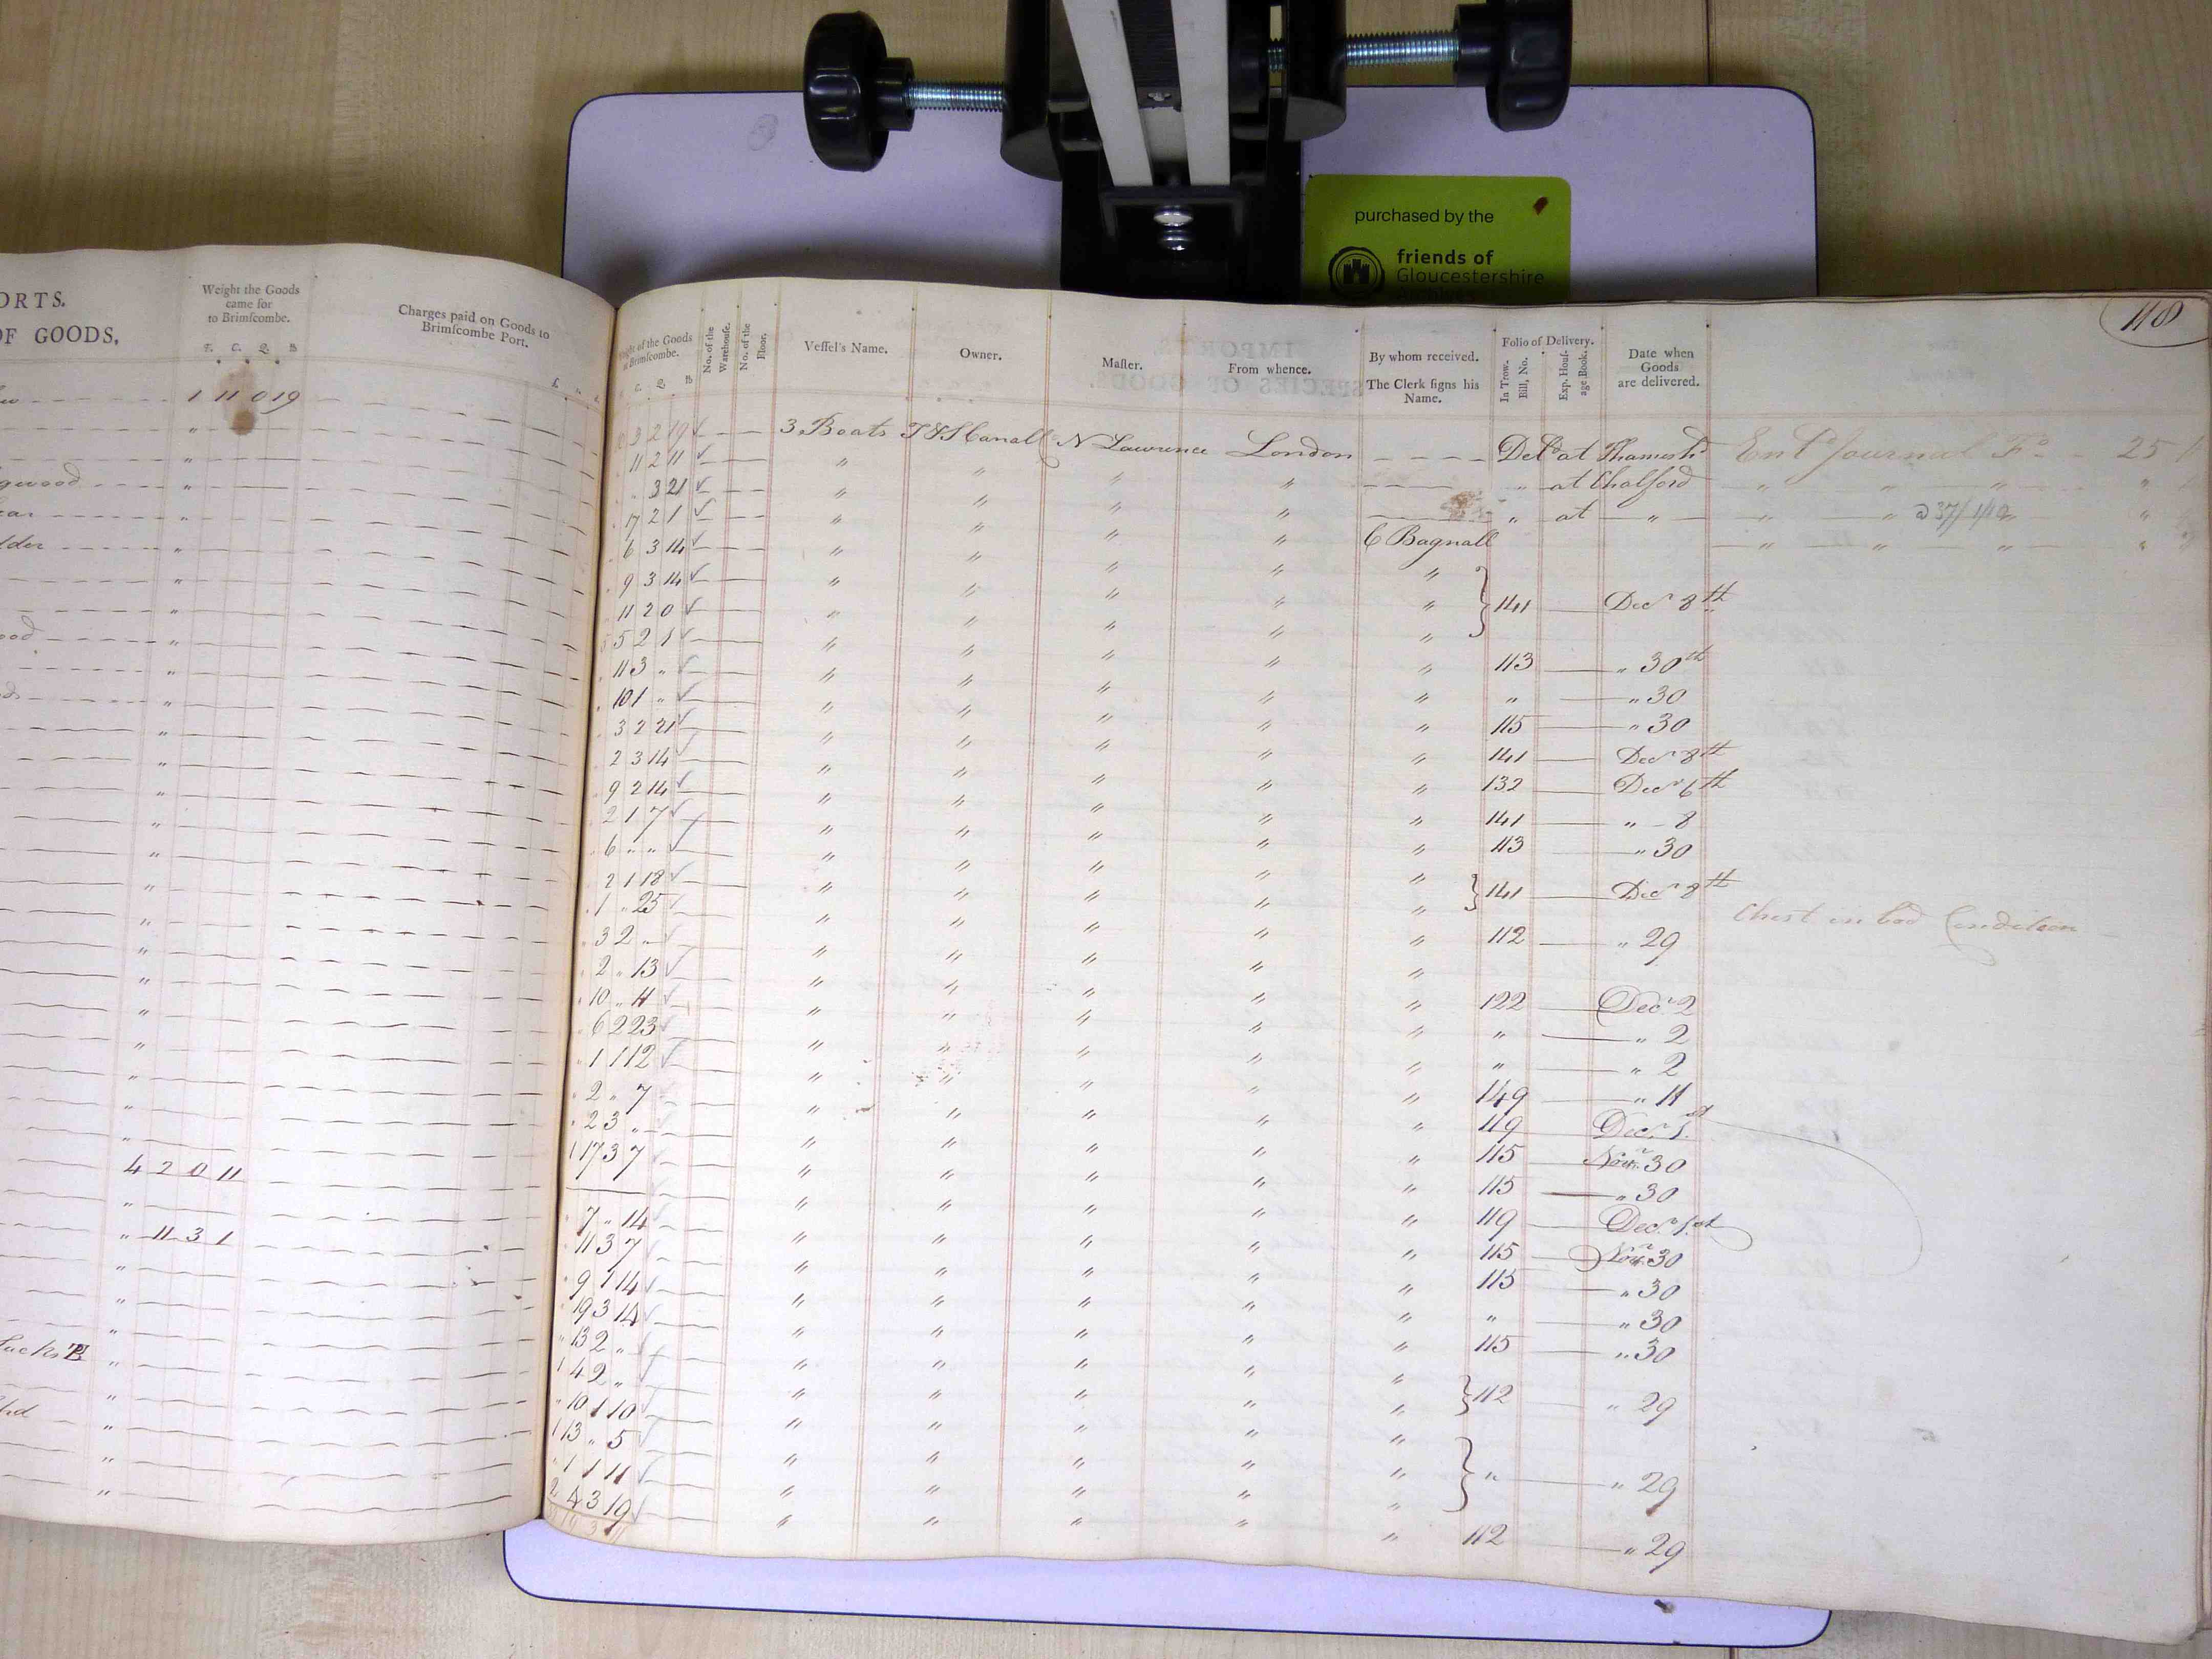 purchased by the
friends of
Gloucestershire
Archives
ORTS.
OF GOODS,
Weight the Goods
came for
to Brimscombe.
T. C. Q. lb
Charges paid on Goods to
Brimscombe Port.
£
1 11 0 19
gwood
ood
4 2 0 11
" 11 3 1
Sacks
118
Weight of the Goods
at Brimscombe.
C. Q. lb
No. of the
Warehouse.
No. of the
Floor.
Vessel's Name.
Owner.
Master.
From whence.
By whom received.
The Clerk signs his
Name.
Folio of Delivery.
In Trow.
Bill, No.
Exp. Housage Book.
Date when
Goods
are delivered.
3 2 19 3 Boats T & S Canal N Lawrence London Deld at Thames hd Entd Journal Fo 25
11 2 11 " " " " " at Chalford " " " "
" 3 21 " " " " " at " " " D37/1/12 "
17 2 1 " " " " C Bagnall " " " "
6 3 14 " " " " "
9 3 14 " " " " " 141 Decr 8th
11 2 0 " " " " "
5 2 1 " " " " " 113 " 30th
11 3 " " " " " " " " 30
10 1 " " " " " " 115 " 30
3 2 21 " " " " " 141 Decr 8th
2 3 14 " " " " " 132 Decr 6th
9 2 14 " " " " " 141 " 8
2 1 7 " " " " " 113 " 30
6 " " " " " " "
2 1 18 " " " " " 141 Decr 8th
1 " 25 " " " " " Chest in bad Condition
3 2 " " " " " " 112 " 29
2 " 13 " " " " "
10 " 11 " " " " " 122 Decr 2
6 2 23 " " " " " " " 2
1 1 12 " " " " " " " 2
2 " 7 " " " " " 149 " 11
2 3 " " " " " " 119 Decr 1st
1 17 3 7 " " " " " 115 Novr 30
" " " " " 115 " 30
7 " 14 " " " " " 119 Decr 1st
11 3 7 " " " " " 115 Novr 30
9 1 14 " " " " " 115 " 30
19 3 14 " " " " " " " 30
" 13 2 " " " " " " 115 " 30
1 4 2 " " " " " "
" 10 1 10 " " " " " 112 " 29
1 13 " 5 " " " " "
" 1 1 11 " " " " " " " 29
2 4 3 19 " " " " "
" " " " " 112 " 29